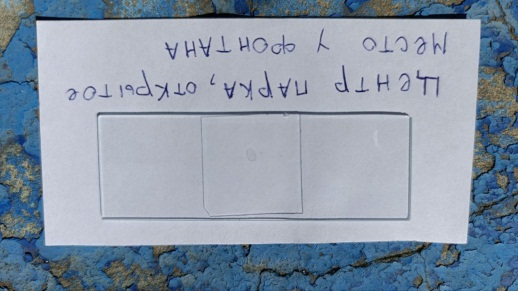 Центр парка, открытое
место у фонтана